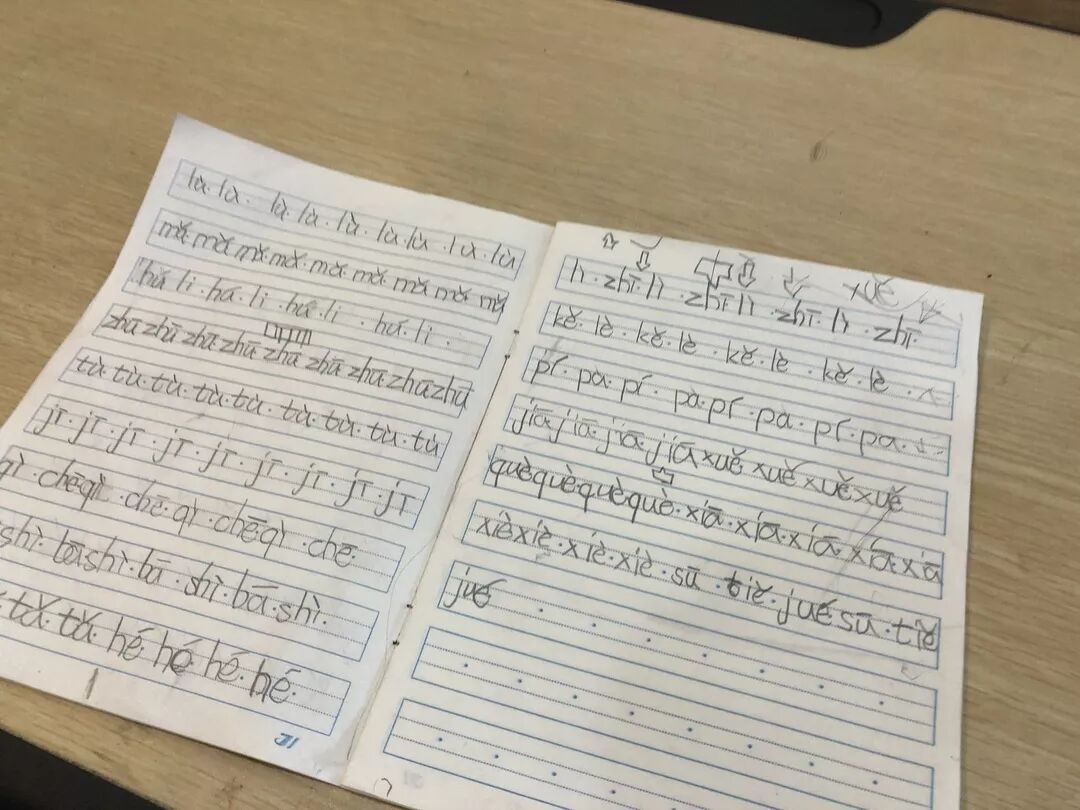 là là · là · là · là · là là · là · là
mǎ · mǎ mǎ · mǎ · mǎ · mǎ mǎ mǎ mǎ
hǎ li · há · li · há · li · há · li ·
zhā zhā zhā zhā zhā zhā zhā zhā zhā
tù · tù · tù · tù · tù · tù · tù · tù · tù
jī · jī · jī · jī · jī · jī · jī · jī · jī
qì · chē qì · chē · qì · chē qì · chē ·
shì · bā shì · bā · shì · bā · shì ·
tǎ · tǎ · hé · hé hé · hé ·
xuě
lì · zhī lì · zhī lì · zhī · lì · zhī ·
kě · lè · kě · lè · kě · lè · kě · lè ·
pí · pa · pí · pà · pí · pà · pí · pa ·
jiā · jiā · jiā · jiā xuě xuě · xuě xuě
què què què què · xiā · xiā · xiā · xiā · xiā
xiè xiè · xiè · xiè · sū tiě · jué sū · tiě
jué